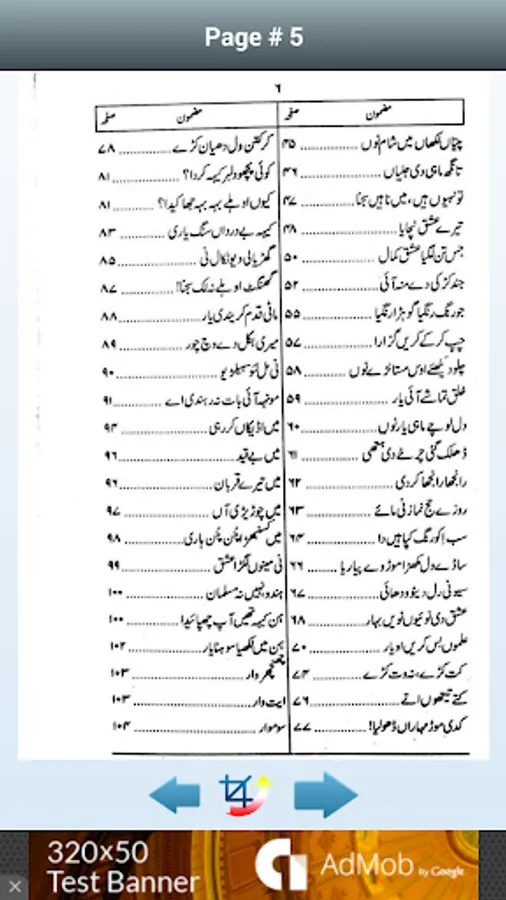 Page # 5
۶
مضمون صفحہ
چٹھیاں لکھاں میں شام نوں ۴۵
تانگھ ماہی دی جلیاں ۴۶
تونہیوں ہیں، میں ناہیں سجنا ۴۷
تیرے عشق نچایا ۴۸
جس تن لگیا عشق کمال ۵۰
جند کڑکی دے منہ آئی ۵۲
جو رنگ رنگیا گوہڑا رنگیا ۵۵
چپ کر کے کریں گزارا ۵۷
چلو دیکھئے اوس مستانڑے نوں ۵۸
خلق تماشے آئی یار ۵۹
دل لوچے ماہی یار نوں ۶۰
ڈھلک گئی چرخے دی ہتھی ۶۱
رانجھا رانجھا کردی ۶۲
روزے حج نماز نی مائے ۶۳
سب اکو رنگ کپاہیں دا ۶۴
ساڈے ول مکھڑا موڑ وے پیاریا ۶۶
سیونی رل دیو ودھائی ۶۷
عشق دی نوئیوں نویں بہار ۶۸
علموں بس کریں او یار ۷۰
کت کڑے، نہ وت کڑے ۷۴
کتے تیتھوں اتے ۷۶
کدی موڑ مہاراں ڈھولیا! ۷۷
مضمون صفحہ
کر کتن ول دھیان کڑے ۷۸
کوئی پچھو دلبر کیہہ کردا؟ ۸۱
کیوں اوہلے بہہ بہہ جھاکیدا؟ ۸۱
کیہہ بے درداں سنگ یاری ۸۳
گھڑیالی دیو نکال نی ۸۵
گھنگٹ اوہلے نہ لک سجنا! ۸۷
ماٹی قدم کریندی یار ۸۸
میری بکل دے وچ چور ۸۹
نی مل لؤ سہیلڑیو ۹۰
مونہہ آئی بات نہ رہندی اے ۹۱
میں اڈیکاں کر رہی ۹۴
میں بے قید ۹۶
میں تیرے قربان ۹۶
میں چوہڑیڑی آں ۹۷
میں کسنبھڑا چن چن ہاری ۹۸
نی مینوں لگڑا عشق ۹۹
ہندو نہیں نہ مسلمان ۱۰۰
ہن کیہہ تھیں آپ چھپائیدا ۱۰۰
ہن میں لکھیا سوہنا یار ۱۰۲
چھنچھر وار ۱۰۳
ایت وار ۱۰۳
سوموار ۱۰۴
320×50
Test Banner
AdMob by Google